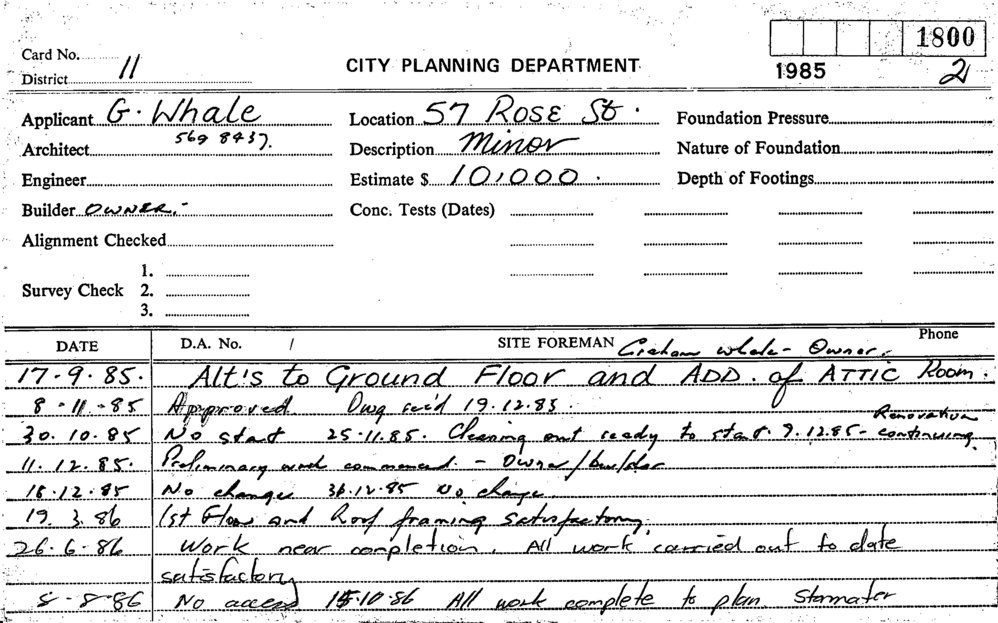 Card No.
1800
District 11
CITY PLANNING DEPARTMENT
1985 2
Applicant G. Whale Location 57 ROSE St. Foundation Pressure
Architect 569 8437. Description Minor Nature of Foundation
Engineer Estimate $ 10,000. Depth of Footings
Builder OWNER.- Conc. Tests (Dates)
Alignment Checked
1.
Survey Check 2.
3.
DATE D.A. No. / SITE FOREMAN Graham Whale - Owner. Phone
17-9-85. ALT'S to Ground FLOOR and ADD. of ATTIC Room.
8-11-85 Approved Dwg rec'd 19.12.85.
30.10.85 No start 25-11.85. Cleaning out ready to start. 9.12.85- Renovation continuing.
11.12.85. Preliminary work commenced. - Owner/builder
18.12.85 No change 30.12.85 No change.
19.3.86 1st Floor and Roof framing satisfactory.
26.6.86 Work near completion. All work carried out to date
satisfactory
8-8-86 No access 15.10 86 All work complete to plan.